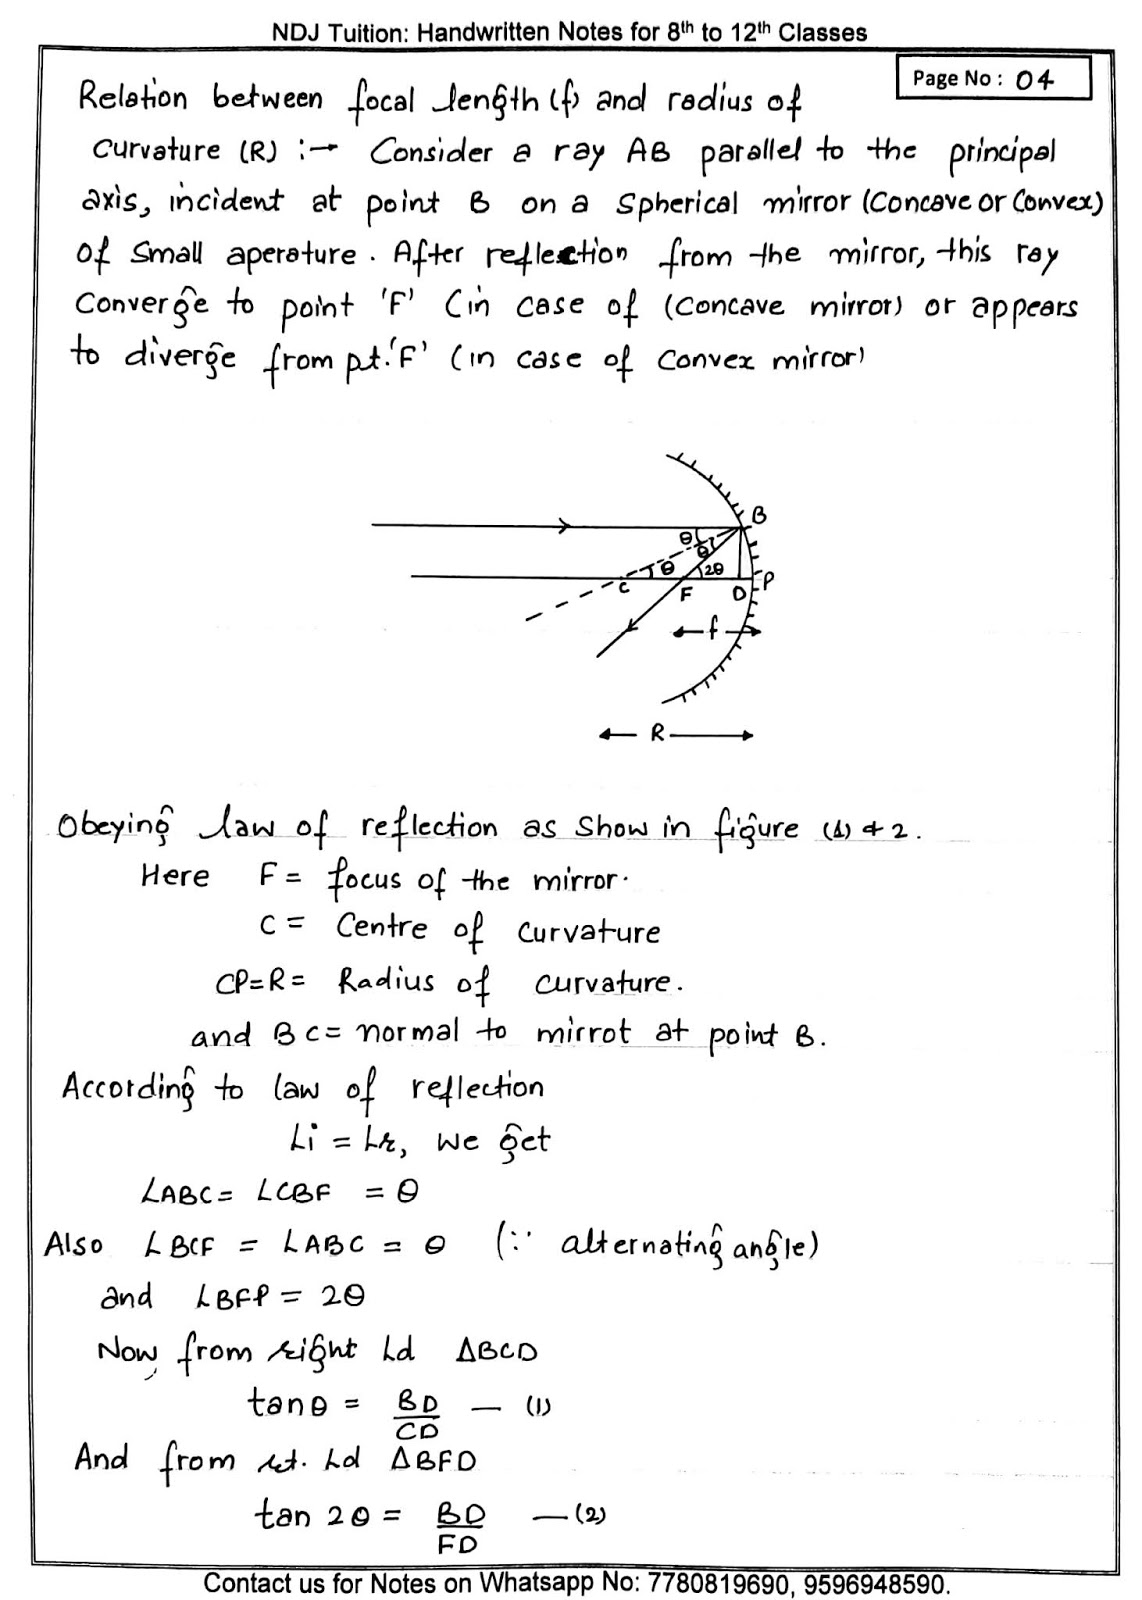 NDJ Tuition: Handwritten Notes for 8th to 12th Classes
Page No : 04
Relation between focal length (f) and radius of
curvature (R) :→ Consider a ray AB parallel to the principal
axis, incident at point B on a Spherical mirror (Concave or Convex)
of small aperature. After reflection from the mirror, this ray
Converge to point 'F' (in case of (Concave mirror) or appears
to diverge from pt.'F' (in case of Convex mirror)
B
θ
θ
θ
2θ
C
F
D
P
f
R
Obeying law of reflection as show in figure (1) & 2.
Here F = focus of the mirror.
C = Centre of curvature
CP=R= Radius of curvature.
and BC= normal to mirrot at point B.
According to law of reflection
∠i = ∠r, we get
∠ABC= ∠CBF = θ
Also ∠BCF = ∠ABC = θ (∵ alternating angle)
and ∠BFP = 2θ
Now, from right ∠d ΔBCD
tanθ = BD/CD — (1)
And from rt. ∠d ΔBFD
tan 2θ = BD/FD — (2)
Contact us for Notes on Whatsapp No: 7780819690, 9596948590.